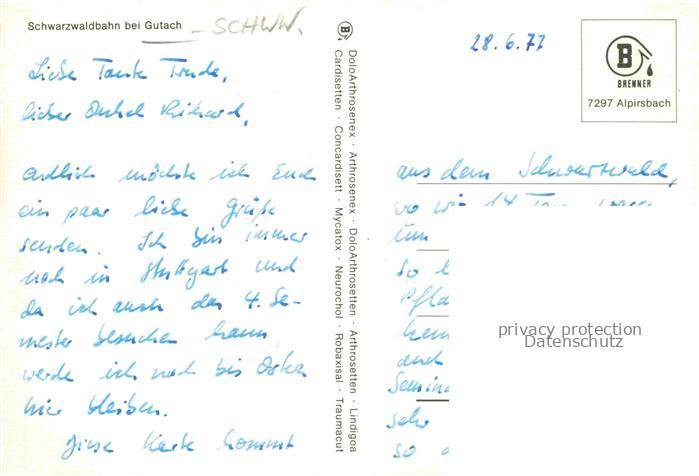 Schwarzwaldbahn bei Gutach - SCHWW.
Liebe Tante Trude,
lieber Onkel Richard,
endlich möchte ich Euch
ein paar liebe Grüße
senden. Ich bin immer
noch in Stuttgart und
da ich auch das 4. Se-
mester besuchen kann,
werde ich noch bis Ostern
hier bleiben.
Diese Karte kommt
DoloArthrosenex · Arthrosenex · DoloArthrosetten · Arthrosetten · Lindigoa
Cardisetten · Concardisett · Mycatox · Neurochol · Robaxisal · Traumacut
28.6.77
B
BRENNER
7297 Alpirsbach
aus dem Schwarzwald,
wo wir 14
um
so
Pfla
auch
Semin
sehr
so
privacy protection
Datenschutz